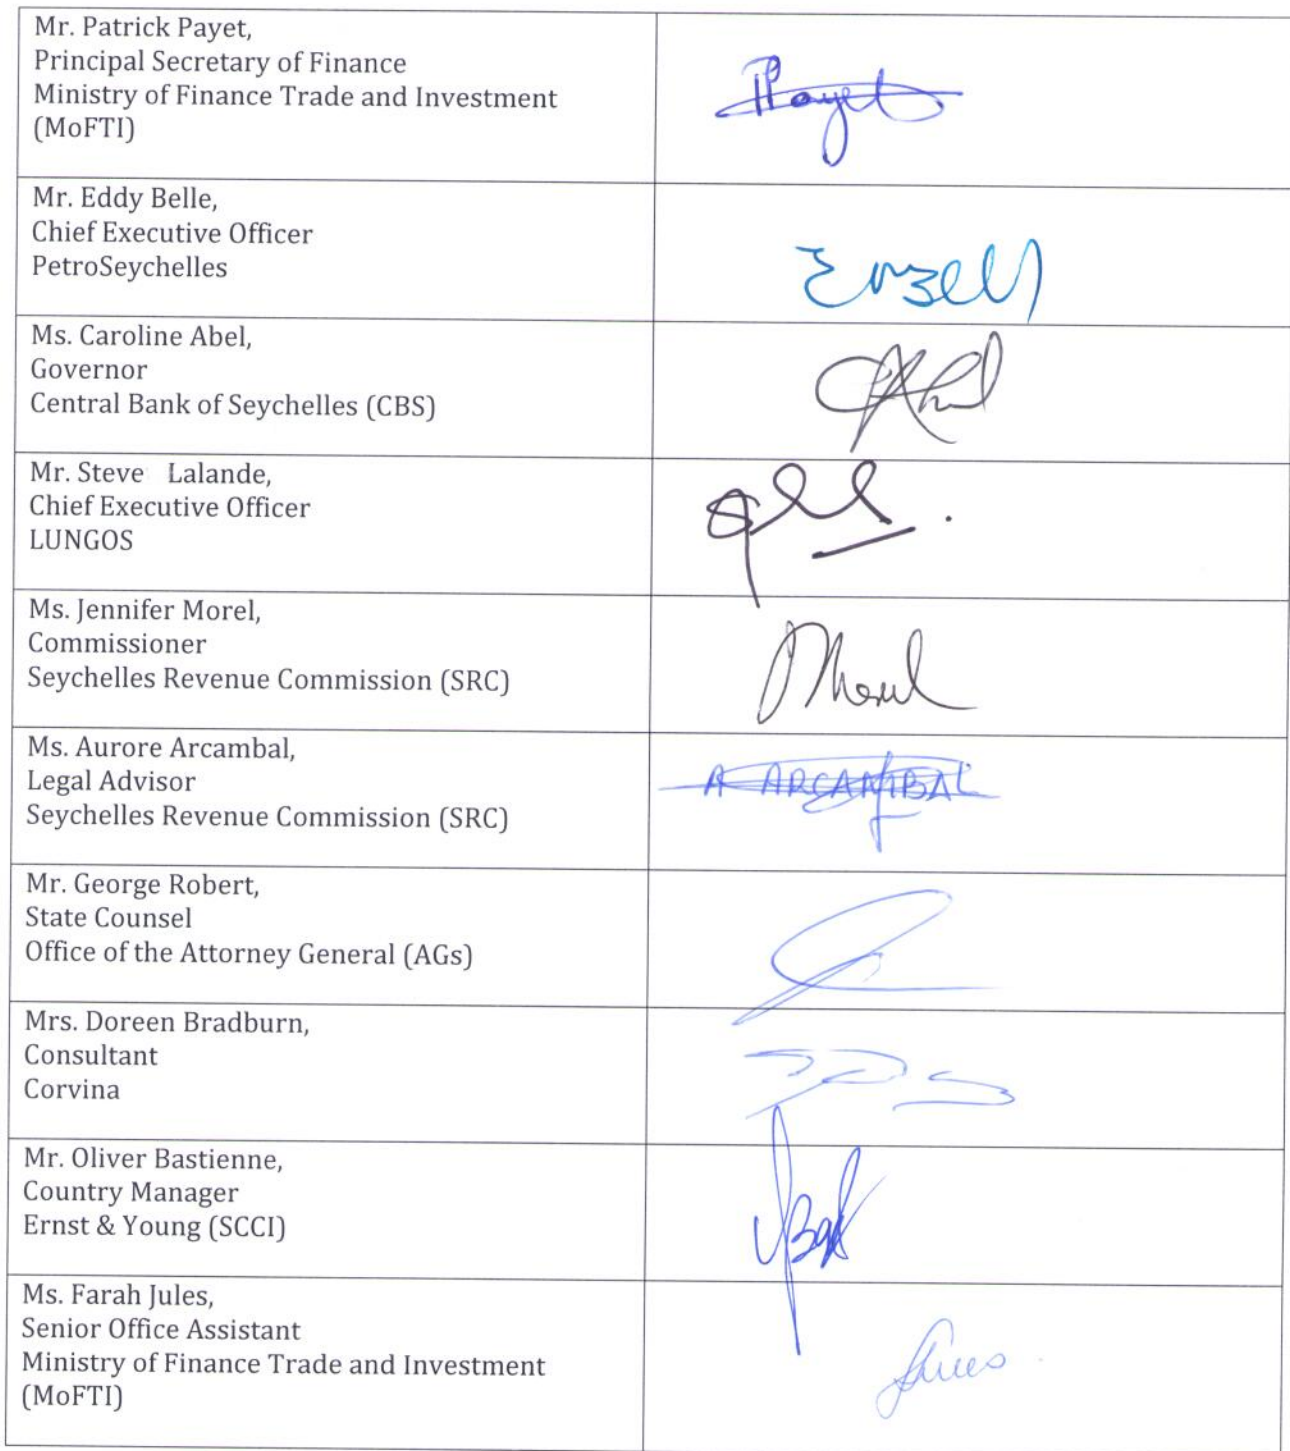 Mr. Patrick Payet,
Principal Secretary of Finance
Ministry of Finance Trade and Investment
(MoFTI)
Payet
Mr. Eddy Belle,
Chief Executive Officer
PetroSeychelles
Ms. Caroline Abel,
Governor
Central Bank of Seychelles (CBS)
Mr. Steve Lalande,
Chief Executive Officer
LUNGOS
Ms. Jennifer Morel,
Commissioner
Seychelles Revenue Commission (SRC)
Ms. Aurore Arcambal,
Legal Advisor
Seychelles Revenue Commission (SRC)
A ARCAMBAL
Mr. George Robert,
State Counsel
Office of the Attorney General (AGs)
Mrs. Doreen Bradburn,
Consultant
Corvina
Mr. Oliver Bastienne,
Country Manager
Ernst & Young (SCCI)
Ms. Farah Jules,
Senior Office Assistant
Ministry of Finance Trade and Investment
(MoFTI)